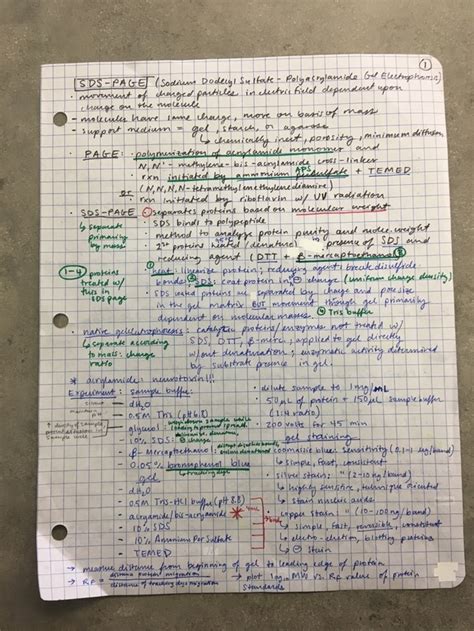 1
SDS-PAGE (Sodium Dodecyl Sulfate - Polyacrylamide Gel Electrophoresis)
• movement of charged particles in electric field dependent upon
charge on the molecule
- molecules have same charge, move on basis of mass
- support medium = gel, starch, or agarose
↳ chemically inert, porosity, minimum diffusion
PAGE: polymerization of acrylamide monomer and
N,N'-methylene-bis-acrylamide cross-linker
rxn initiated by ammonium persulfate + TEMED
APS
(N,N,N,N-tetramethylenethylenediamine)
or
rxn initiated by riboflavin w/ UV radiation
• SDS-PAGE separates proteins based on molecular weight
↳ separate primarily by mass
- SDS binds to polypeptide
- method to analyze protein purity and molec. weight
- proteins heated/denatured presence of SDS and
reducing agent (DTT + β-mercaptoethanol)
1-4 proteins treated w/ this in SDS page
heat: linearize protein; reducing agent: break disulfide
bonds; SDS: coat protein in ⊖ charge (uniform charge density)
- SDS treated proteins are separated by charge and pore size
in the gel matrix BUT movement through gel primarily
dependent on molecular masses.
Tris buffer
• native gel electrophoresis: catalytic proteins/enzymes not treated w/
SDS, DTT, β-merc, applied to gel directly
↳ separate according to mass:charge ratio
w/out denaturation; enzymatic activity determined
by substrate presence in gel.
* acrylamide: neurotoxin!!!
Experiment: sample buffer:
- dH2O
- 0.5M Tris (pH 6.8)
- glycerol:
- 10% SDS:
- β-Mercaptoethanol
- 0.05% bromophenol blue
↳ tracking dye
• dilute sample to 1mg/mL
• 50μL of protein + 150μL sample buffer
(1:4 ratio)
• 200 volts for 45 min
gel
- dH2O
- 0.5M Tris-HCl buffer (pH 8.8)
- acrylamide/bis-acrylamide
- 10% SDS
- 10% Ammonium Per Sulfate
- TEMED
gel staining
• coomassie blue: sensitivity (0.1-1 μg/band)
↳ simple, fast, consistent
• silver stain: " (2-10 ng/band)
↳ highly sensitive, technique oriented
↳ stain nucleic acids
• copper stain: " (10-100 ng/band)
↳ simple, fast, reversible, consistent
↳ electro-elution, blotting proteins
↳ ⊖ stain
→ measure distance from beginning of gel to leading edge of protein
→ RF = distance protein migration / distance of tracking dye migration
→ plot log10 MW vs. RF value of protein
standards